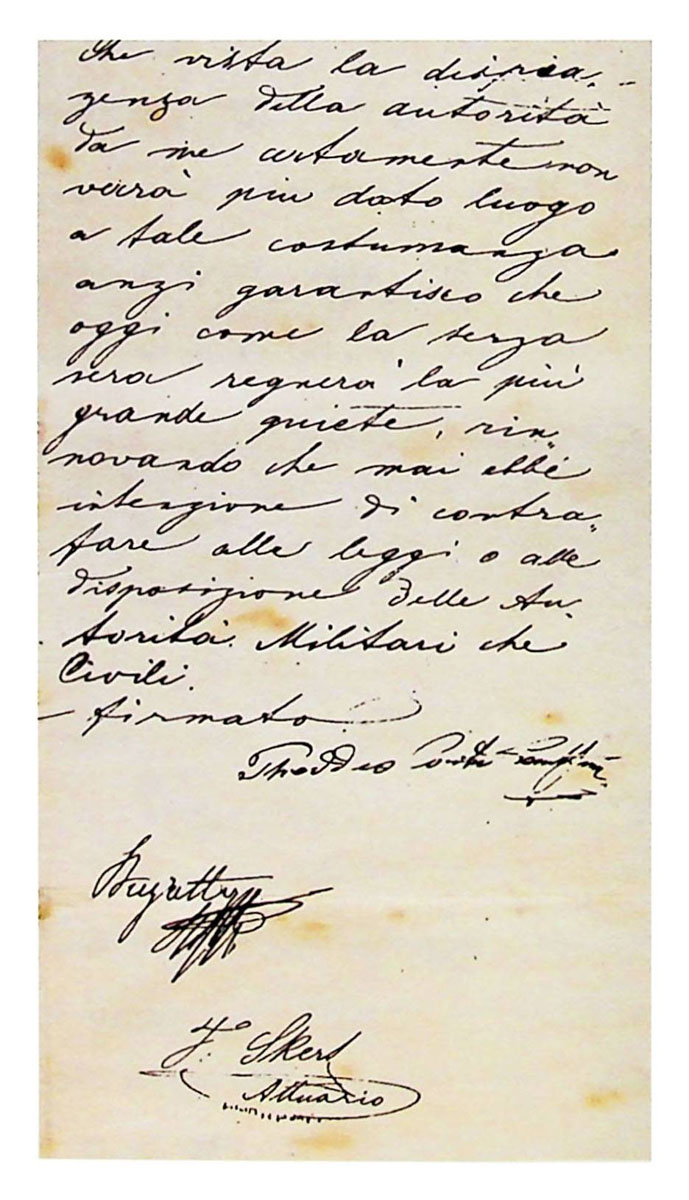 Che vista la dispia-
zenza della autorità
da me certamente non
verrà più dato luogo
a tale costumanza
anzi garantisco che
oggi come la terza
sera regnerà la più
grande quiete, rin„
novando che mai ebbi
intenzione di contra„
fare alle leggi o alle
disposizione delle Au-
torità Militari che
Civili.
- firmato
Thoddeo
F. Skerl
Attuario